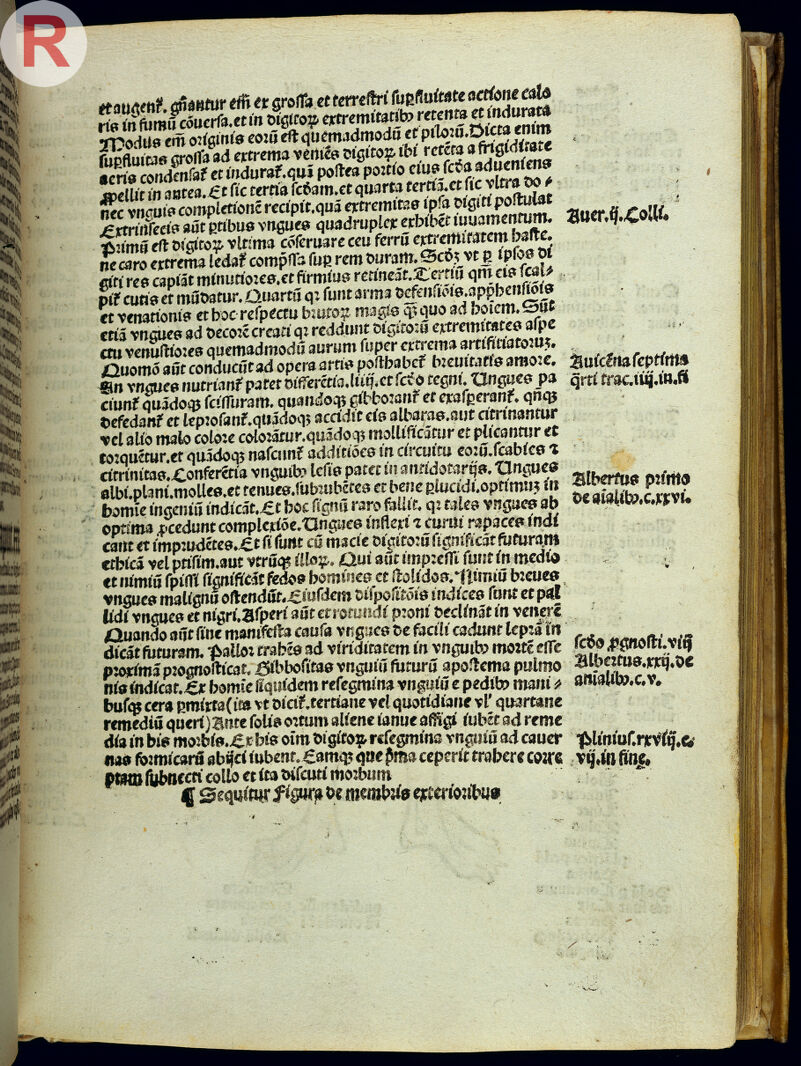 R
et augent᷑. gñantur em̃ ex grossa et terrestri suꝑfluitate actione calo
ris in fumū cōuersa. et in digitoꝝ extremitatibꝰ retenta et indurata
Modus em̃ originis eorū est quemadmodū et pilorū. Dicta enim
suꝑfluitas grossa ad extrema veniēs digitoꝝ ibi retēta a frigiditate
aeris condensat᷑ et indurat᷑. quā postea portio eius scd̄a adueniens
ꝓpellit in antea. Et sic tertia scd̄am. et quarta tertiā. et sic vltra do⸗
nec vnguis completionē recipit. quā extremitas ipsa digiti postulat
Extrinsecis aūt ꝑtibus vngues quadruplex exhibēt iuuamentum.
Primū est digitoꝝ vltima cōseruare ceu ferrū extremitatem haste.
ne caro extrema ledat᷑ comp̄ssa suꝑ rem duram. Scd̄ꝫ vt ꝑ ipsos di
giti res capiāt minutiores. et firmius retineāt. Tertiū qm̄ eis scal⸗
pit᷑ cutis et mūdatur. Quartū qꝛ sunt arma defensiōis. appͥhensiōis
et venationis et hoc respectu brutoꝝ magis qꝫ quo ad hoīem. Sūt
etiā vngues ad decorē creati qꝛ reddunt digitorū extremitates aspe
ctu venustiores quemadmodū aurum super extrema artifitiatoruꝫ.
Quomō aūt conducūt ad opera artis posthabet᷑ breuitatis amore.
An vngues nutriant᷑ patet differētia. liiij. et scd̄o tegni. Ungues pa
ciunt᷑ quādoqꝫ scissuram. quandoqꝫ gibborant᷑ et exasperant᷑. qn̄qꝫ
defedant᷑ et leprosant᷑. quādoqꝫ accidit eis albaras. aut citrinantur
vel alio malo colore colorātur. quādoqꝫ mollificātur et plicantur et
torquētur. et quādoqꝫ nascunt᷑ additiōes in circuitu eorū. scabies ⁊
citrinitas. Conferētia vnguibꝰ lesis patet in antidotarijs. Ungues
albi. plani. molles. et tenues. subrubētes et bene ꝑlucidi. optimuꝫ in
homīe ingeniū indicāt. Et hoc signū raro fallit. qꝛ tales vngues ab
optima ꝓcedunt complexiōe. Ungues inflexi ⁊ curui rapaces indi
cant et imprudētes. Et si sunt cū macie digitorū significāt futuram
ethicā vel ptisim. aut vtrūqꝫ illoꝝ. Qui aūt impressi sunt in medio
et nimiū spissi significāt fedos homines et stolidos. Nimiū breues
vngues malignū ostendūt. Eiusdem dispositōis indices sunt et pal
lidi vngues et nigri. Asperi aūt et rotundi proni declināt in venerē
Quando aūt sine manifesta causa vngues de facili cadunt leprā in
dicāt futuram. Pallor trahēs ad viriditatem in vnguibꝰ mortē esse
proximā prognosticat. Gibbositas vnguiū futurū apostema pulmo
nis indicat. Ex homīe siquidem resegmina vnguiū e pedibꝰ mani⸗
busqꝫ cera ꝑmixta (ita vt dicit᷑. tertiane vel quotidiane vl᷑ quartane
remediū queri) Ante solis ortum aliene ianue affigi iubēt ad reme
dia in his morbis. Ex his oīm digitoꝝ resegmina vnguiū ad cauer
nas formicarū abijci iubent. Eamqꝫ que pͥma ceperit trahere corre
ptam subnecti collo et ita discuti morbum
¶ Sequitur Figura de membris exterioribus
Auer. ij. Colli.
Auicēna septima
q̄rti trac. iiij. in. fi
Albertus primo
de aīalibꝰ. c. xxvi.
scd̄o ꝓgnosti. viij
Albertus. xxij. de
animalibꝰ. c. v.
Plinius. xxviij. c.
vij. in fine.